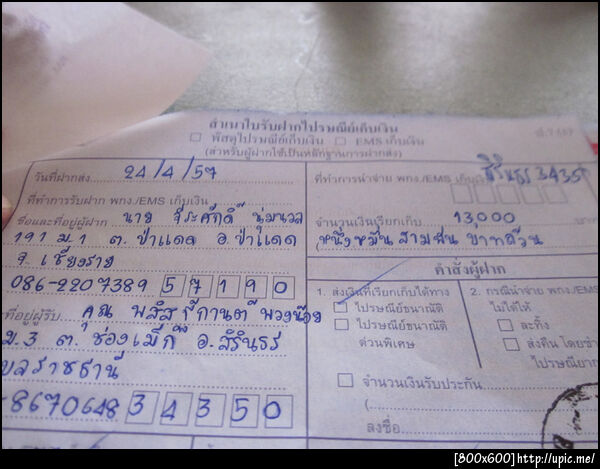 สำเนาใบรับฝากไปรษณีย์เก็บเงิน
พัสดุไปรษณีย์เก็บเงิน EMS เก็บเงิน
(สำหรับผู้ฝากใช้เป็นหลักฐานการฝากส่ง)
วันที่ฝากส่ง 24/4/57
ที่ทำการรับฝาก พกง./EMS เก็บเงิน
ชื่อและที่อยู่ผู้ฝาก นาย จีระศักดิ์ นุ่มนวล
191 ม.1 ต.ป่าแดด อ.ป่าแดด
จ.เชียงราย
086-2207389 57190
ที่อยู่ผู้รับ คุณ พวงน้อย
ม.3 ต.ช่องเม็ก อ.สิรินธร
บลราชธานี
-8670648 34350
ที่ทำการนำจ่าย พกง./EMS เก็บเงิน สิรินธร 3435
จำนวนเงินเรียกเก็บ 13,000 บาท
(หนึ่งหมื่นสามพันบาทถ้วน
คำสั่งผู้ฝาก
1. ส่งเงินที่เรียกเก็บได้ทาง
ไปรษณีย์ธนาณัติ
ไปรษณีย์ธนาณัติ
ด่วนพิเศษ
2. กรณีนำจ่าย พกง/EMS
ไม่ได้ให้
ละทิ้ง
ส่งคืน โดย
ไปรษณีย
จำนวนเงินรับประกัน
(
ลงชื่อ
[800x600]http://upic.me/